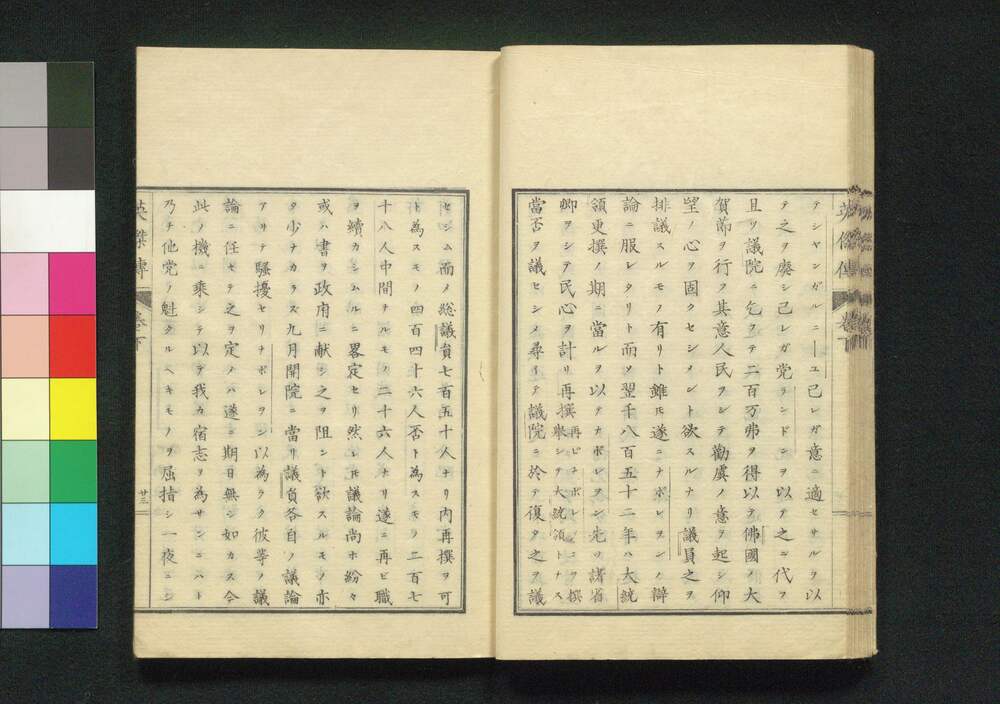 テシヤンガルニーユ己レガ意ニ適セサルヲ以
テ之ヲ廃シ己レガ党ランドンヲ以テ之ニ代フ
且ツ議院ニ乞フテ二百万弗ヲ得以テ佛國ノ大
賀節ヲ行フ其意人民ヲシテ勸虞ノ意ヲ起シ仰
望ノ心ヲ固クセシメント欲スルナリ議員之ヲ
排議スルモノ有リト雖𪜈遂ニナポレヲンノ辯
論ニ服レタリト而ソ翌千八百五十二年ハ大統
領更撰ノ期ニ當ルヲ以テナポレヲン先ツ諸省
卿ヲシテ民心ヲ計リ再撰再ビナポレヲンヲ撰擧シテ大統領トナス
當否ヲ議セシメ尋イテ議院ニ於テ復タ之ヲ議
英傑傳 卷下
セシム而ノ総議員七百五十人ナリ内再撰ヲ可
ト為スモノ四百四十六人否ト為スモノ二百七
十八人中間ナルモノ二十六人ナリ遂ニ再ビ職
ヲ續カシムルニ畧定セリ然レ𪜈議論尚ホ紛々
或ハ書ヲ政府ニ献シ之ヲ阻ント欲スルモノ亦
タ少ナカラズ九月開院ニ當リ議員各自ノ議論
アリテ騒擾セリナポレヲン以為ラク彼等ノ議
論ニ任セテ之ヲ定メハ遂ニ期日無シ如カス今
此ノ機ニ乗シテ以テ我カ宿志ヲ為サンニハト
乃チ他党ノ魁タルヘキモノヲ屈指シ一夜ニシ
英傑傳 卷下 廿三